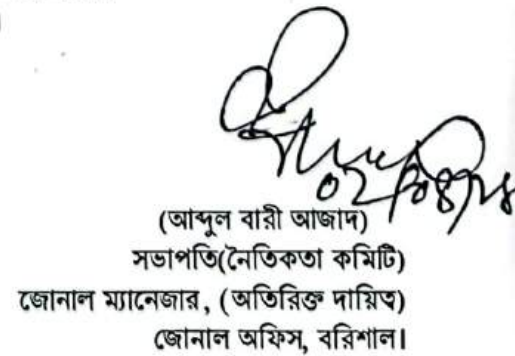 ০২/০৪/২৪
(আব্দুল বারী আজাদ)
সভাপতি(নৈতিকতা কমিটি)
জোনাল ম্যানেজার, (অতিরিক্ত দায়িত্ব)
জোনাল অফিস, বরিশাল।